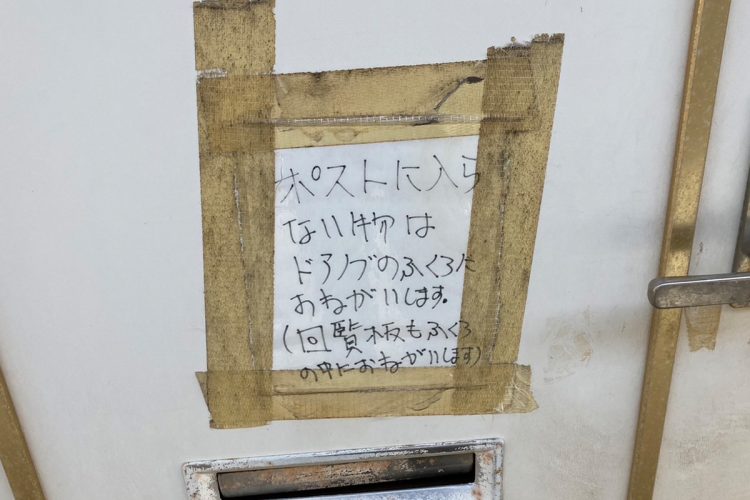 ポストに入ら
ない物は
ドアノブのふくろに
おねがいします。
(回覧板もふくろ
の中におねがいします)